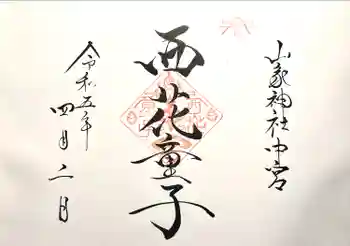 山家神社中宮
西花童子
令和五年
四月二日